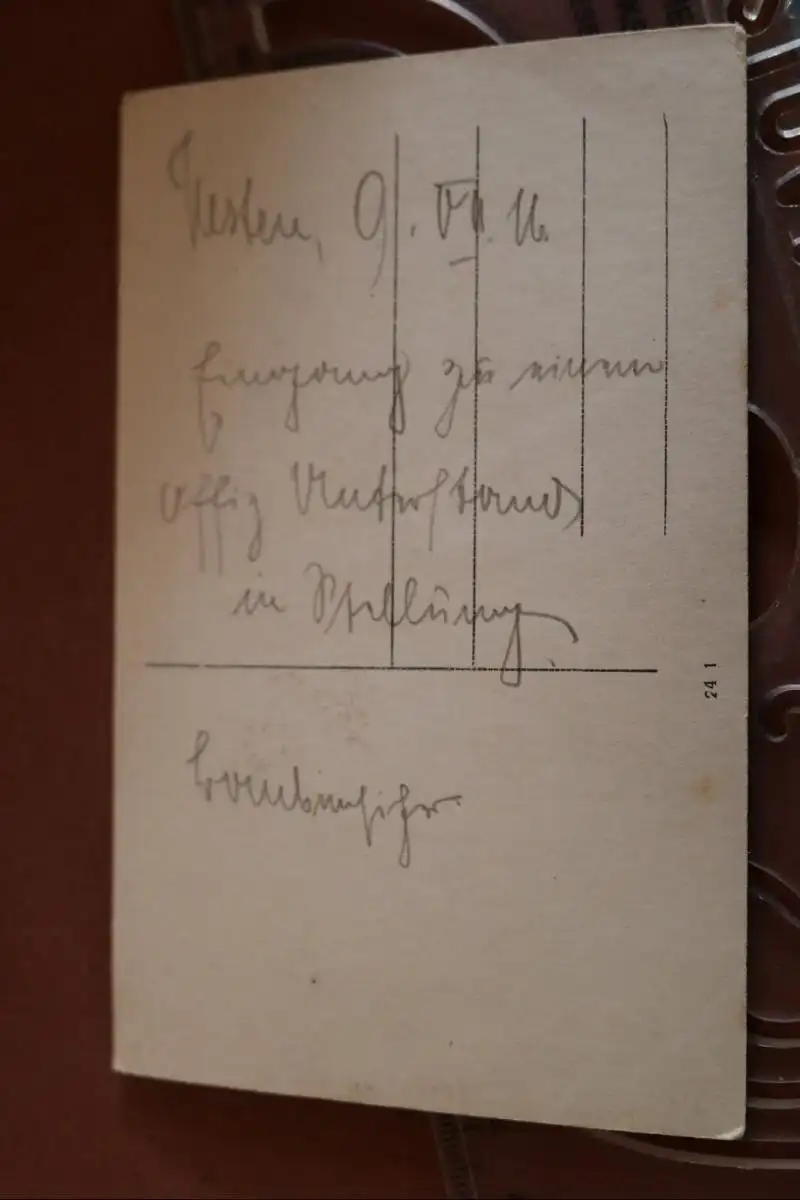 Westen, 9. VII. 16.
Eingang zu einem
Offiz Unterstand
in Stellung.
bombensicher
241